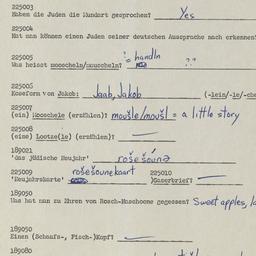 225003
Haben die Juden die Mundart gesprochen? Yes
225004
Hat man können einen Juden seiner deutschen Aussprache nach erkennen?
225005
Was heisst mooscheln/muuscheln? = handln ??
225006
Koseform von Jakob: Jaab, Jakob (-lein/-le/-che
225007
(ein) Mooschele (erzählen)? moušle/moušl = a little story
225008
(eine) Lootze(le) (erzählen)?
189021
'das jüdische Neujahr' rošešounə
225009 rošešounekaart 225010
'Neujahrskarte' )Kaserbrief?
189050
Was hat man zu Ehren von Rosch-Haschoome gegessen? Sweet apples,
189050
Einen (Schaafs-, Fisch-)Kopf?
189080